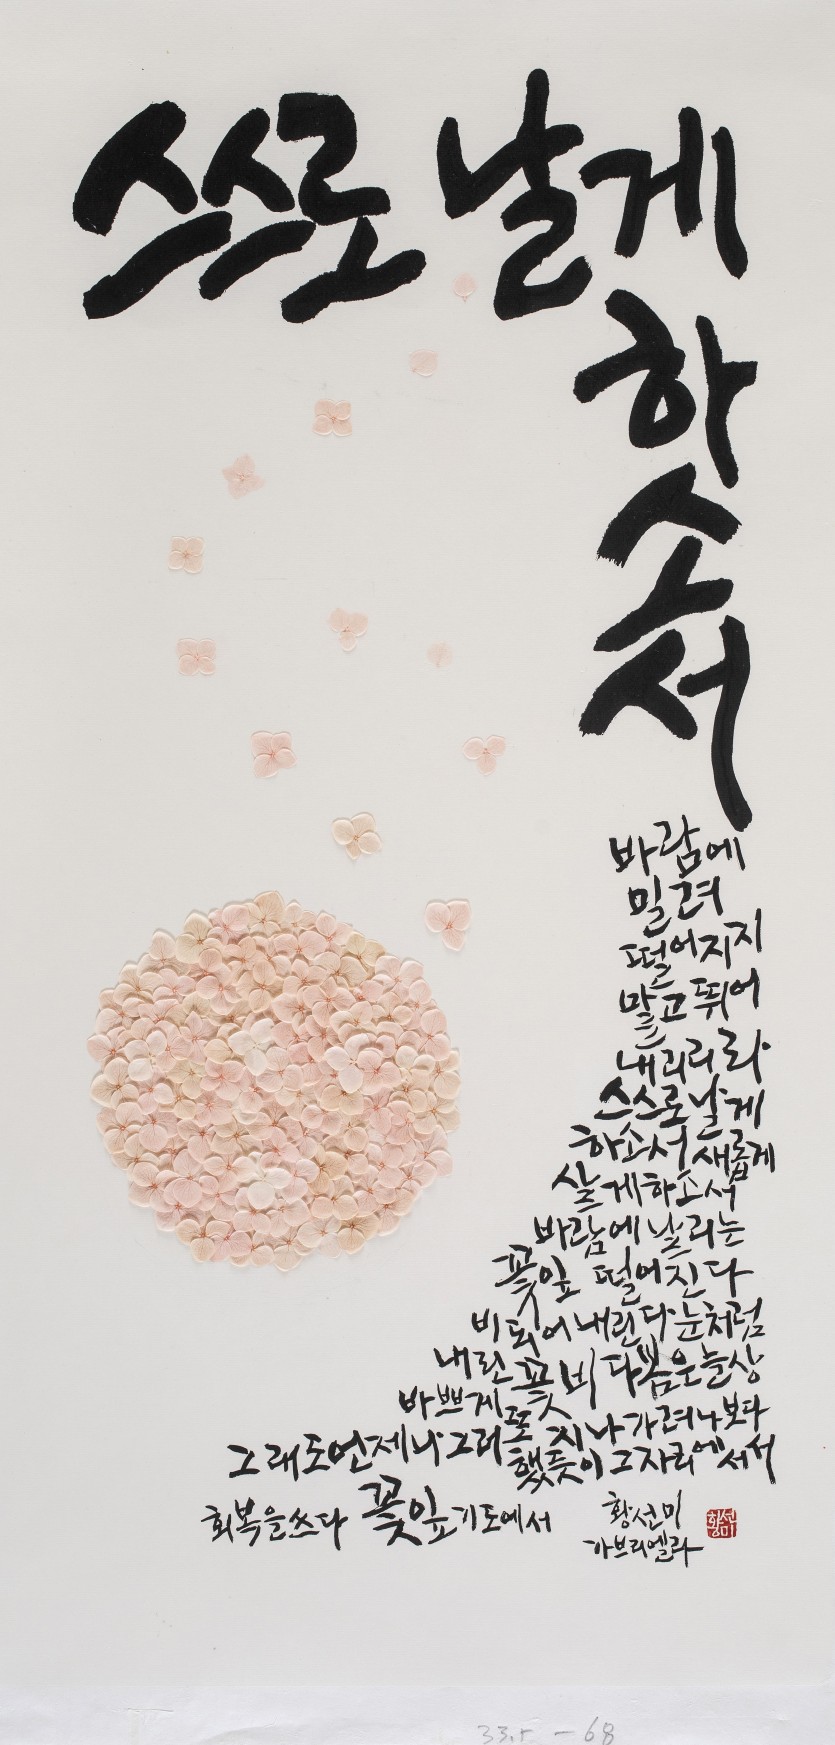 스스로 날게
하
소
서
바람에
밀려
떨어지지
말고 뛰어
내리리라
스스로 날게
하소서 새롭게
살게 하소서
바람에 날리는
꽃잎 떨어진다
비 되어 내린다 눈처럼
내린 꽃비 다 봄은 늘상
바쁘게 또 지나가려나 보다
그래도 언제나 그러했듯이 그 자리에 서서
회복을 쓰다 꽃잎 기도에서
황선미
가브리엘라
황선미
33.5 - 68